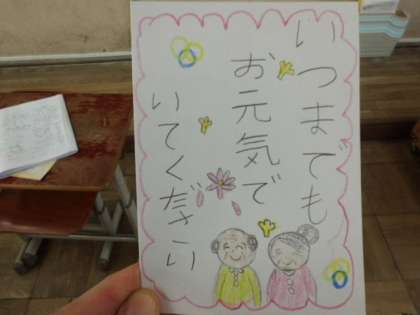 いつまでも
お元気で
いてください